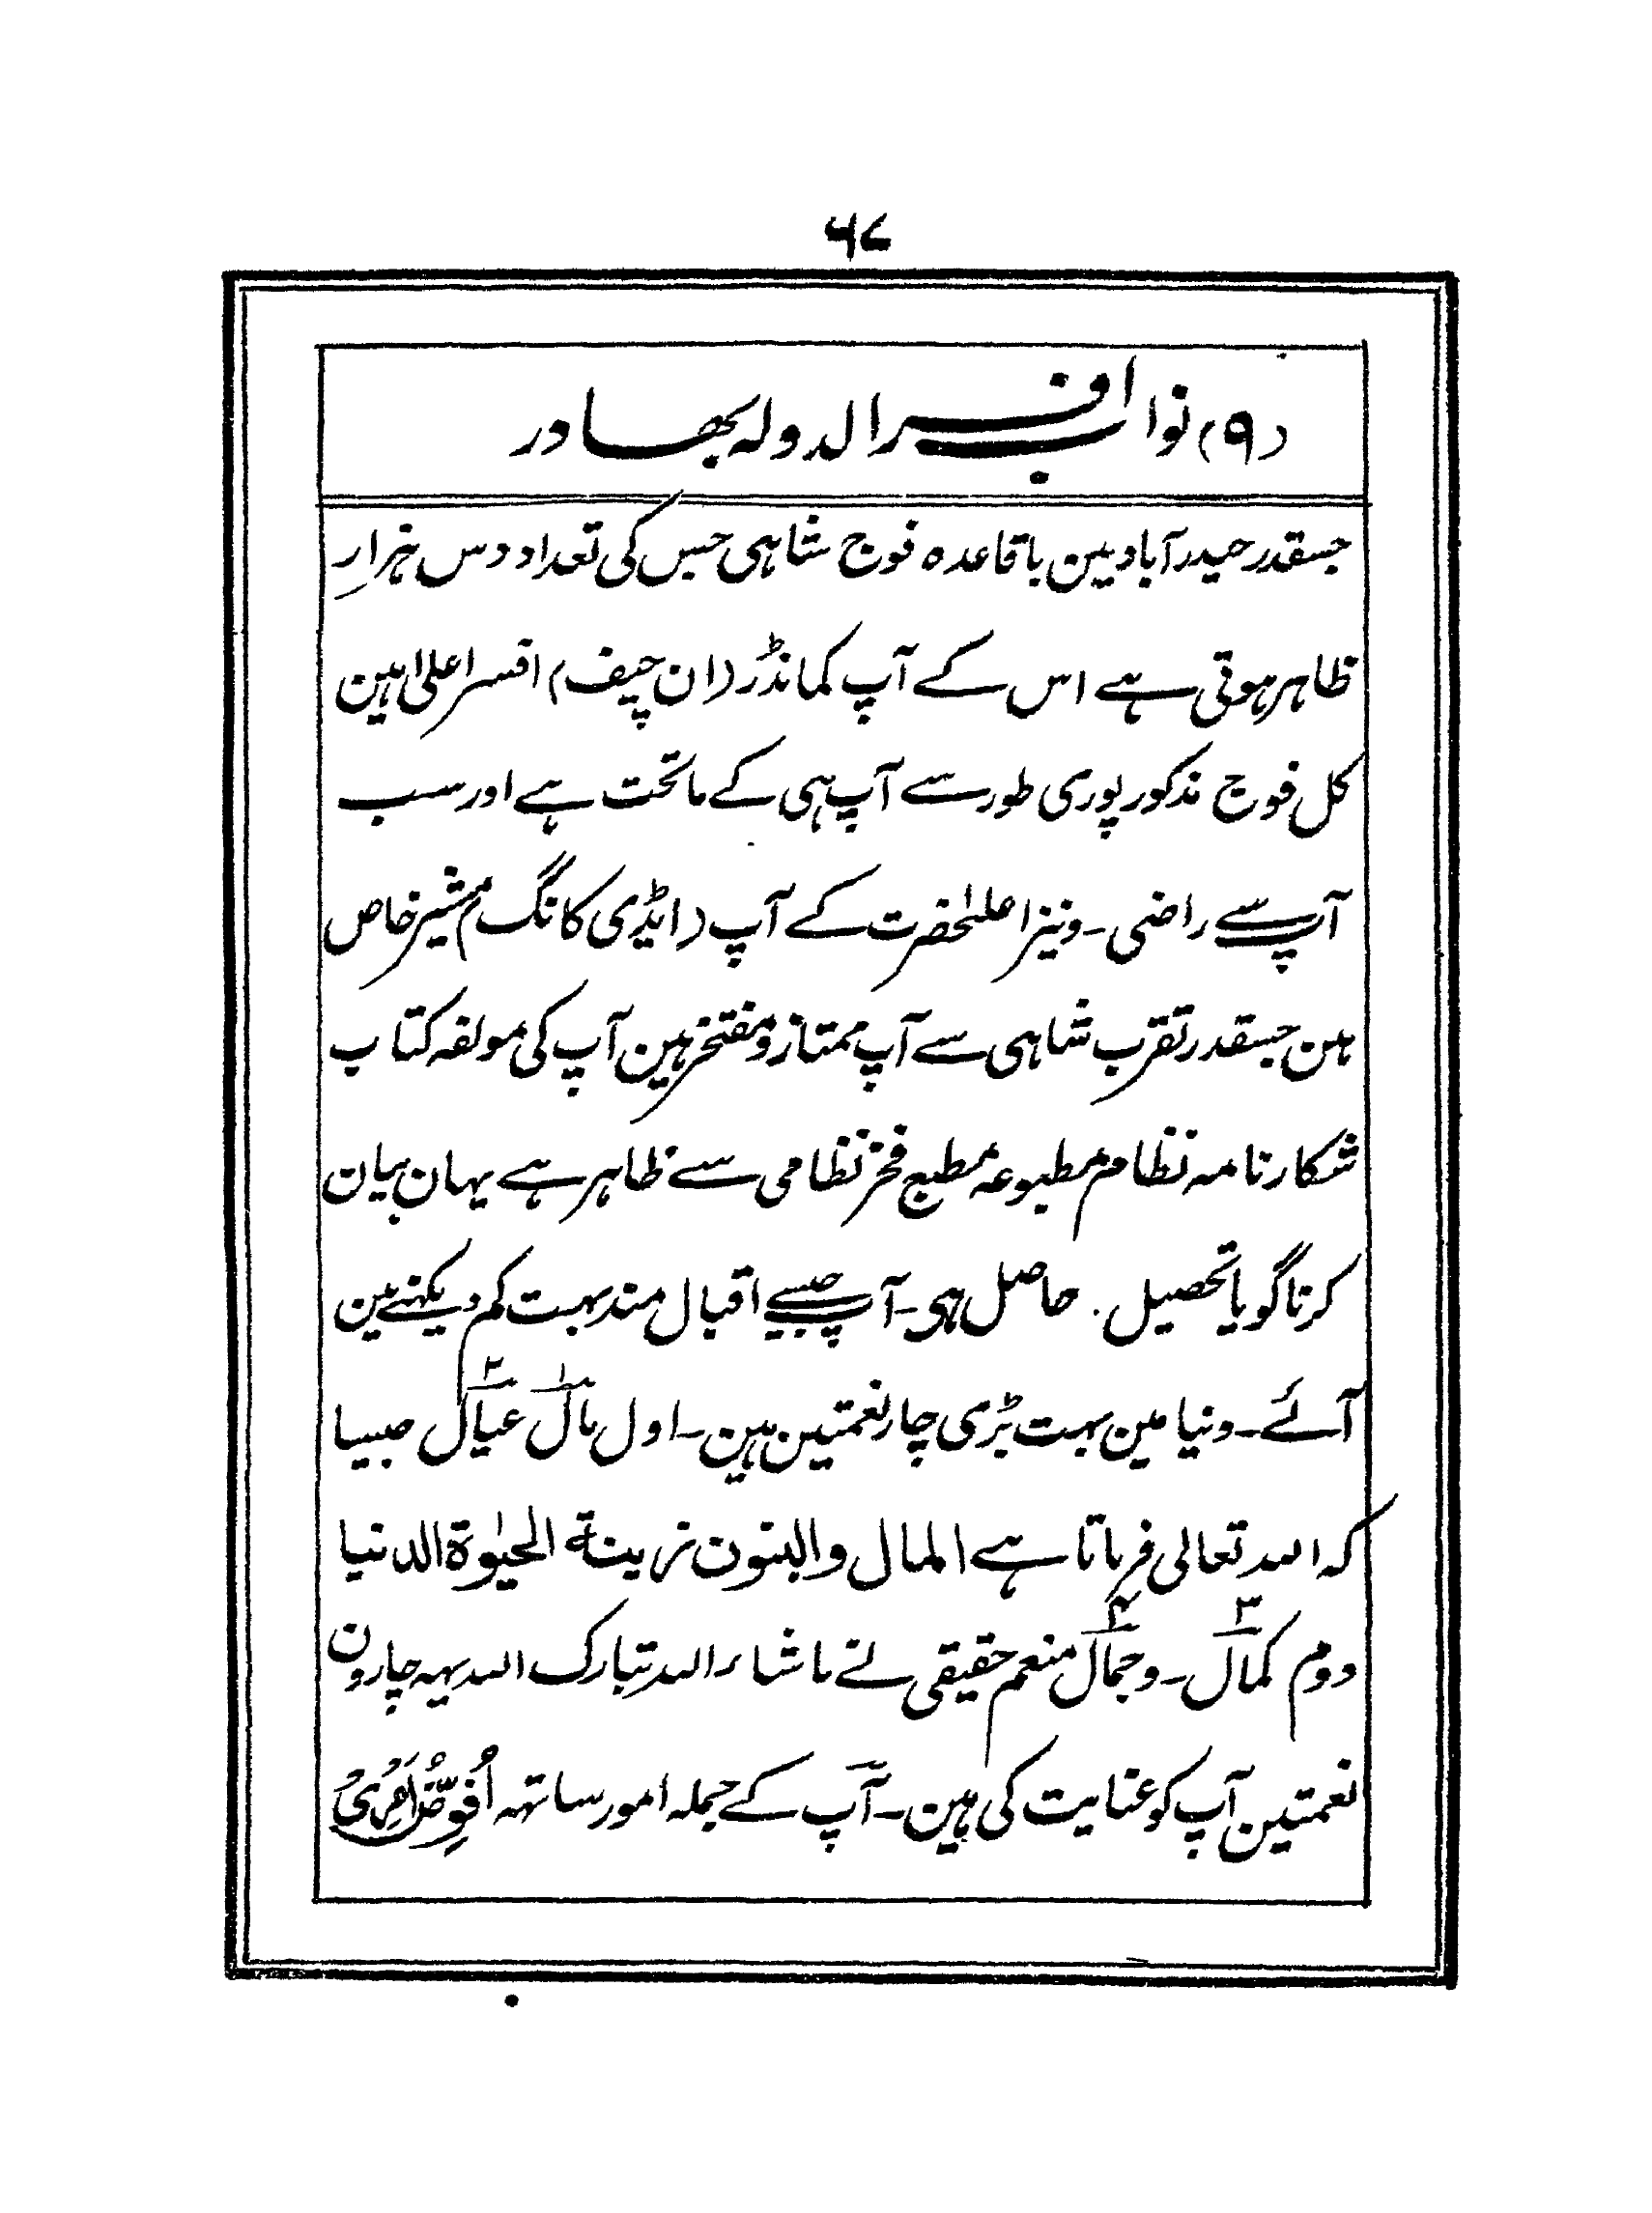 ۶۷
(۹) نواب افسرالدولہ بھادر
جسقدر حیدرآباد مین باقاعدہ فوج شاہی جس کی تعداد دس ہزار
ظاہر ہوتی ہے اس کے آپ کمانڈر (ان چیف) افسر اعلیٰ ہین
کل فوج مذکور پوری طور سے آپ ہی کے ماتحت ہے اور سب
آپ سے راضی ۔ ونیز اعلیٰحضرت کے آپ (ایڈی کانگ) مشیر خاص
ہین جسقدر تقرب شاہی سے آپ ممتاز و مفتخر ہین آپ کی مولفہ کتاب
شکار نامہ نظام مطبوعہ مطبع فخر نظامی سے ظاہر ہے یہان بیان
کرنا گویا تحصیل حاصل ہی ۔ آپ جیسے اقبال مند بہت کم دیکہنے مین
آئے ۔ دنیا مین بہت بڑی چار نعمتین ہین ۔ اول مال۱ عیال۲ جیسا
کہ اللہ تعالی فرماتا ہے المال والبنون زینۃ الحیٰوۃ الدنیا
دوم کمال۳ ۔ وجمال۴ منعم حقیقی نے ماشاء اللہ تبارک اللہ یہہ چارون
نعمتین آپ کو عنایت کی ہین ۔ آپ کے جملہ امور ساتہہ اُفَوِّضُ اَمْرِیْ